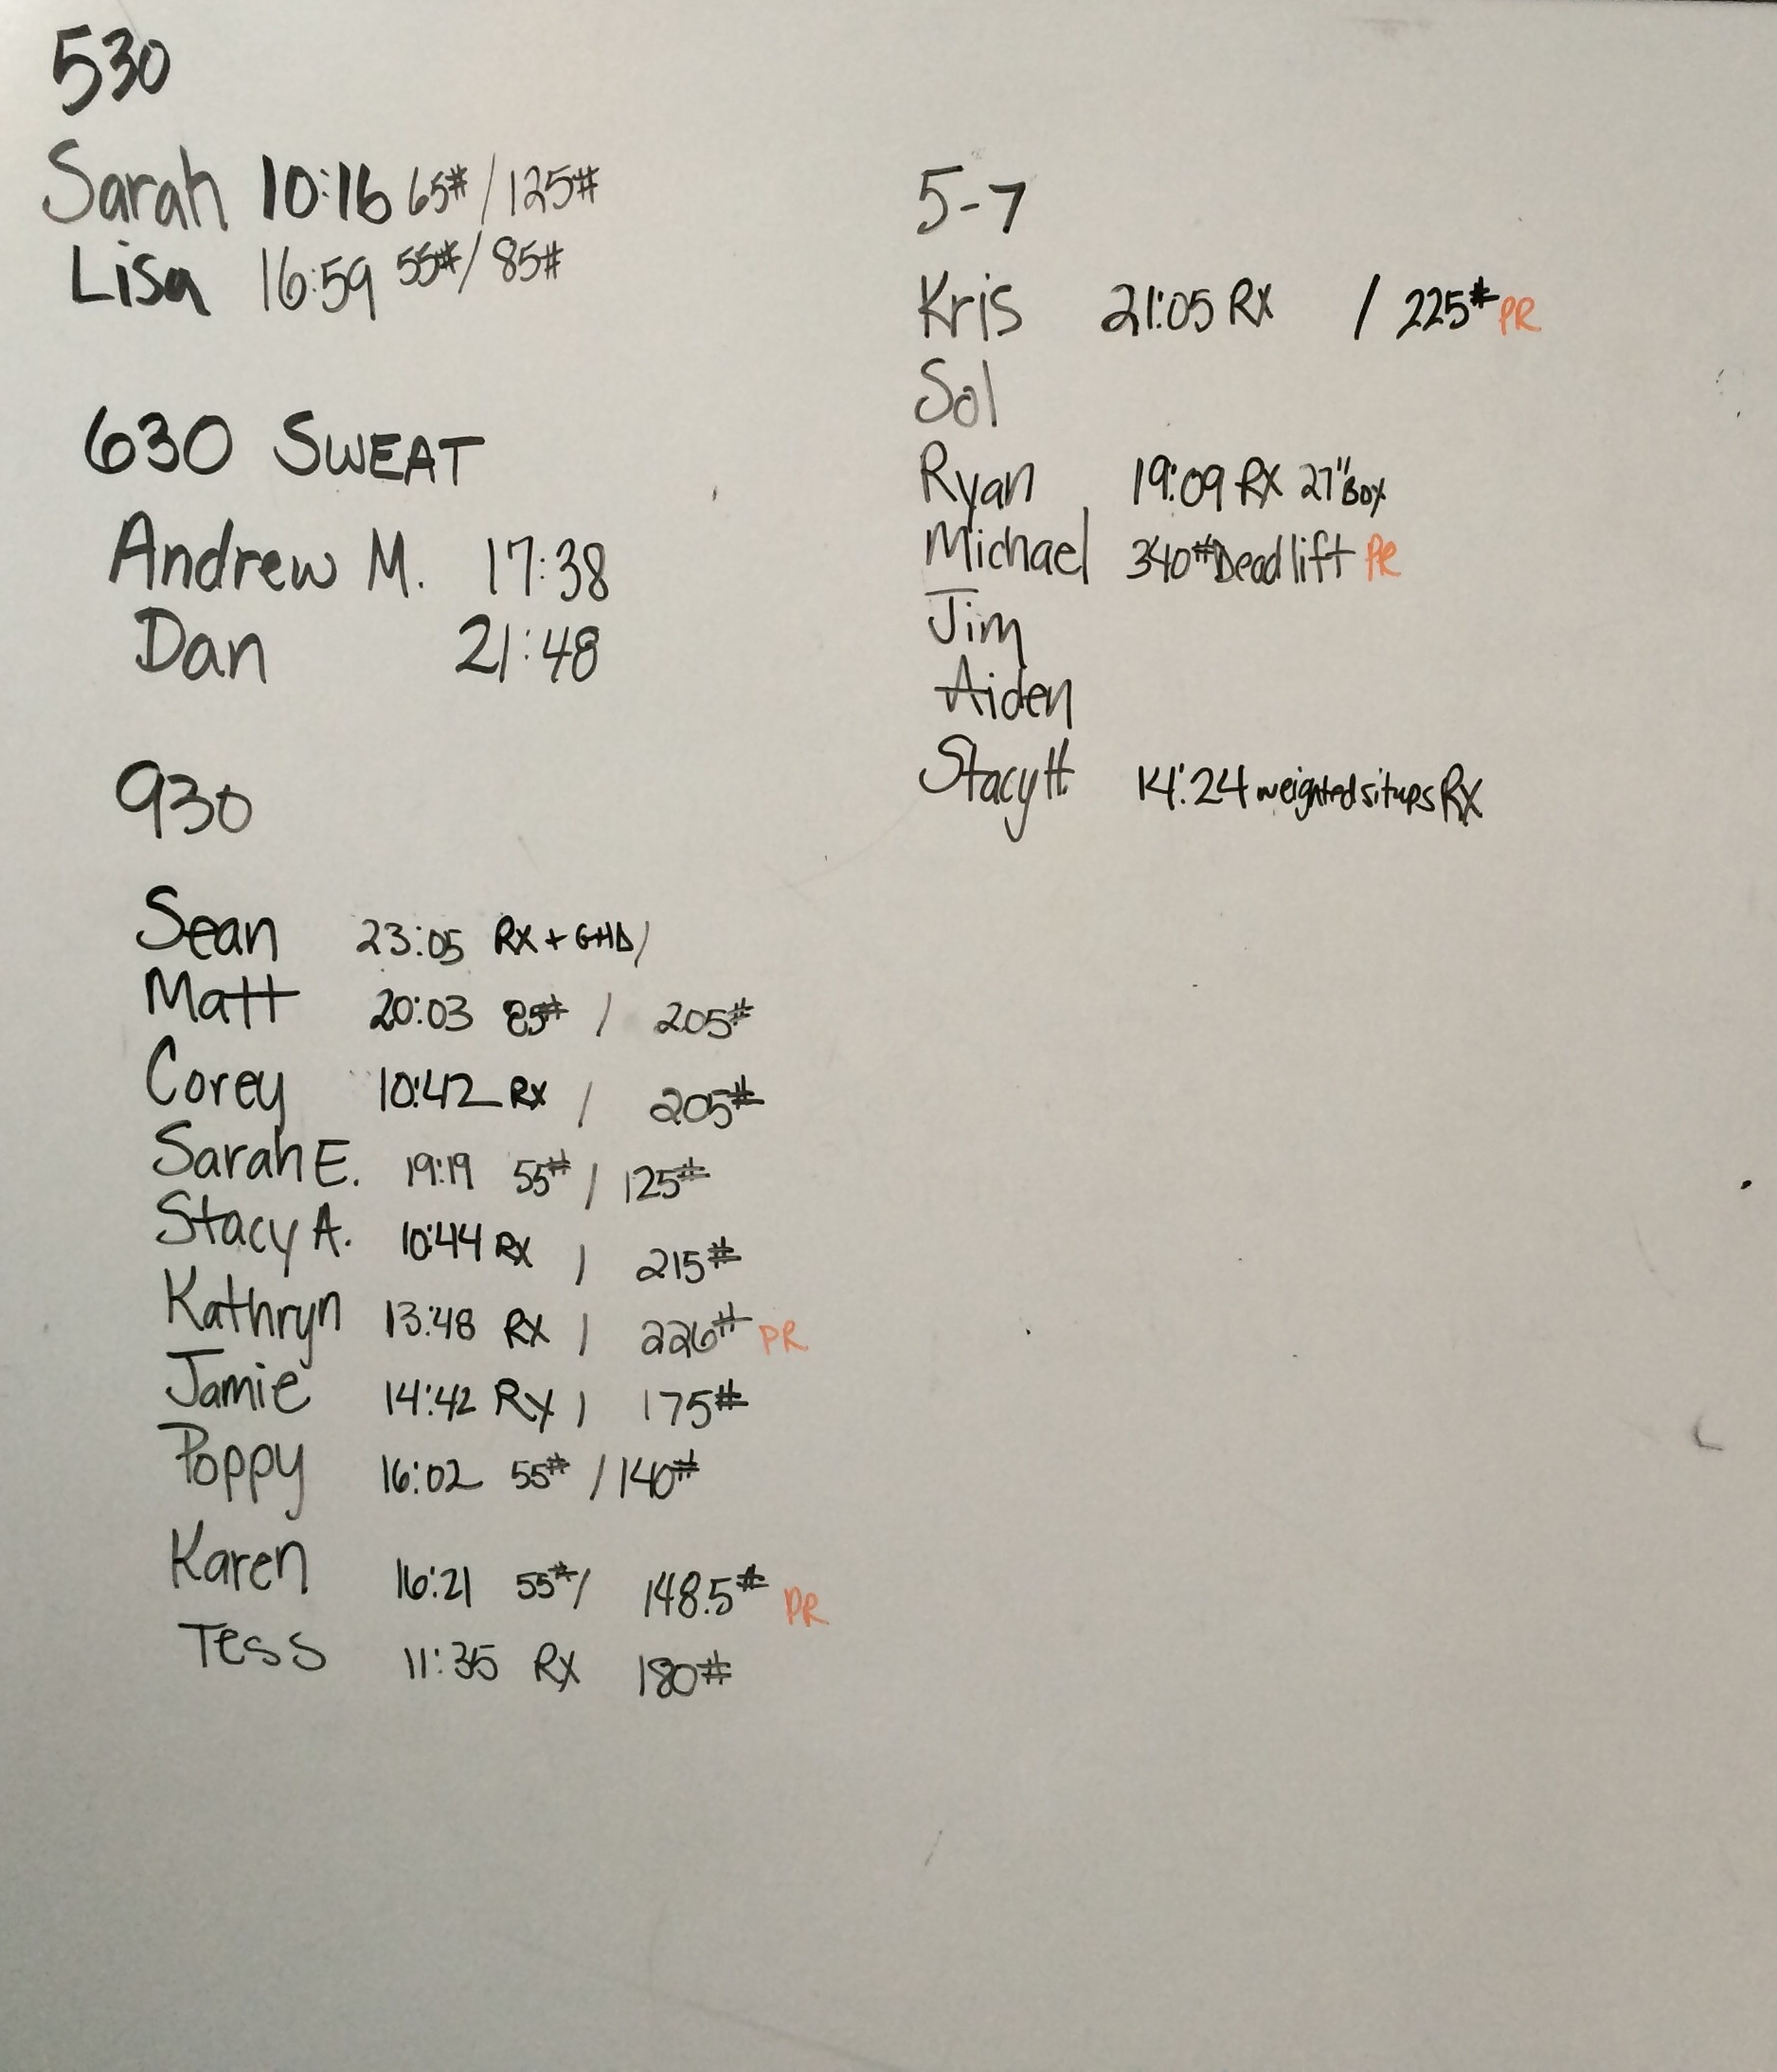 530
Sarah 10:16 65# / 125#
Lisa 16:59 55# / 85#
630 SWEAT
Andrew M. 17:38
Dan 21:48
930
Sean 23:05 RX + GHD /
Matt 20:03 85# / 205#
Corey 10:42 RX / 205#
Sarah E. 19:19 55# / 125#
Stacy A. 10:44 RX / 215#
Kathryn 13:48 RX / 226# PR
Jamie 14:42 RX / 175#
Poppy 16:02 55# / 140#
Karen 16:21 55# / 148.5# PR
Tess 11:35 RX 180#
5-7
Kris 21:05 RX / 225# PR
Sol
Ryan 19:09 RX 27" Box
Michael 340# Deadlift PR
Jim
Aiden
Stacy H 14:24 weighted situps RX